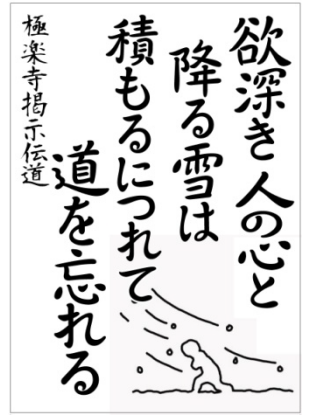 欲深き人の心と
降る雪は
積もるにつれて
道を忘れる
極楽寺掲示伝道